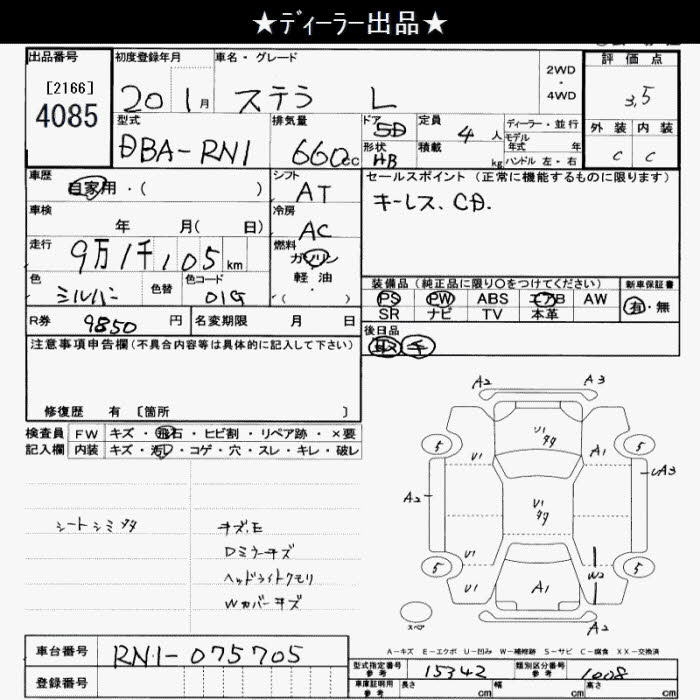 ★ディーラー出品★
出品番号 初度登録年月 車名・グレード 評価点
[2166] 2WD・4WD
4085 20 1月 ステラ L 3.5
型式 排気量 ドア 5D 定員 4人 ディーラー・並行 外装 内装
DBA-RN1 660cc 形状 HB 積載 kg モデル年式 年 C C
ハンドル 左・右
車歴 シフト セールスポイント(正常に機能するものに限ります)
自家用・( ) AT キーレス. CD.
車検 冷房
年 月( 日) AC
走行 燃料
9万1千105km ガソリン
色 色替 色コード 軽油 装備品(純正品に限り○をつけてください) 新車保証書
シルバー 01G ・( ) PS PW ABS エアB AW 有・無
R券 9850円 名変期限 月 日 SR ナビ TV 本革
注意事項申告欄(不具合内容等は具体的に記入して下さい) 後日品
取 手
修復歴 有 [箇所 ]
検査員 FW キズ・飛石・ヒビ割・リペア跡・×要
記入欄 内装 キズ・汚レ・コゲ・穴・スレ・キレ・破レ
A2 A3
U1
5 5
U1 A1
A2 U1 A3
シートシミ タタ キズ.E
Dミラーキズ
ヘッドライトクモリ
Wカバーキズ
U1 W2
5 5
U1 A1
A2
スペア
A-キズ E-エクボ U-凹み W-補修跡 S-サビ C-腐食 XX-交換済
車台番号 RN1-075705
型式指定番号 参考 15342 類別区分番号 参考 1008
登録番号
車庫証明用 参考 長さ cm 幅 cm 高さ cm